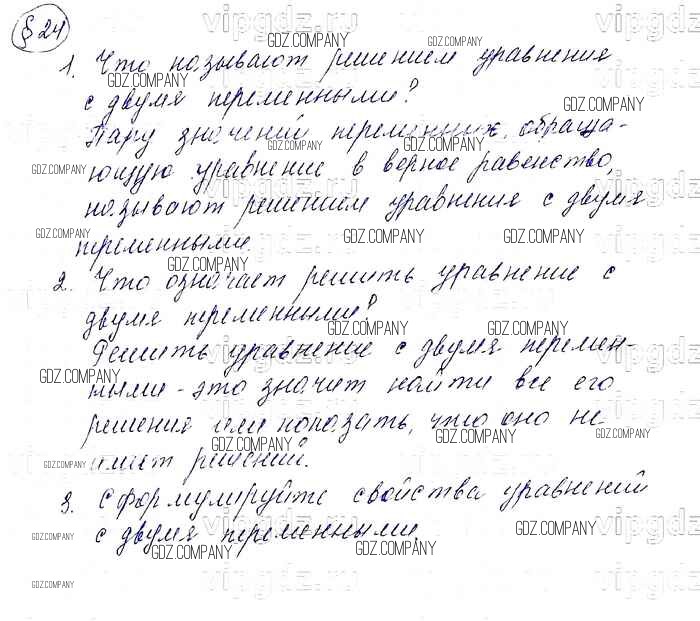 § 24
1. Что называют решением уравнения
с двумя переменными?
Пару значений переменных, обраща-
ющую уравнение в верное равенство,
называют решением уравнения с двумя
переменными.
2. Что означает решить уравнение с
двумя переменными?
Решить уравнение с двумя перемен-
ными - это значит найти все его
решения или показать, что оно не
имеет решений.
3. Сформулируйте свойства уравнений
с двумя переменными.
vipgdz.ru
GDZ.COMPANY